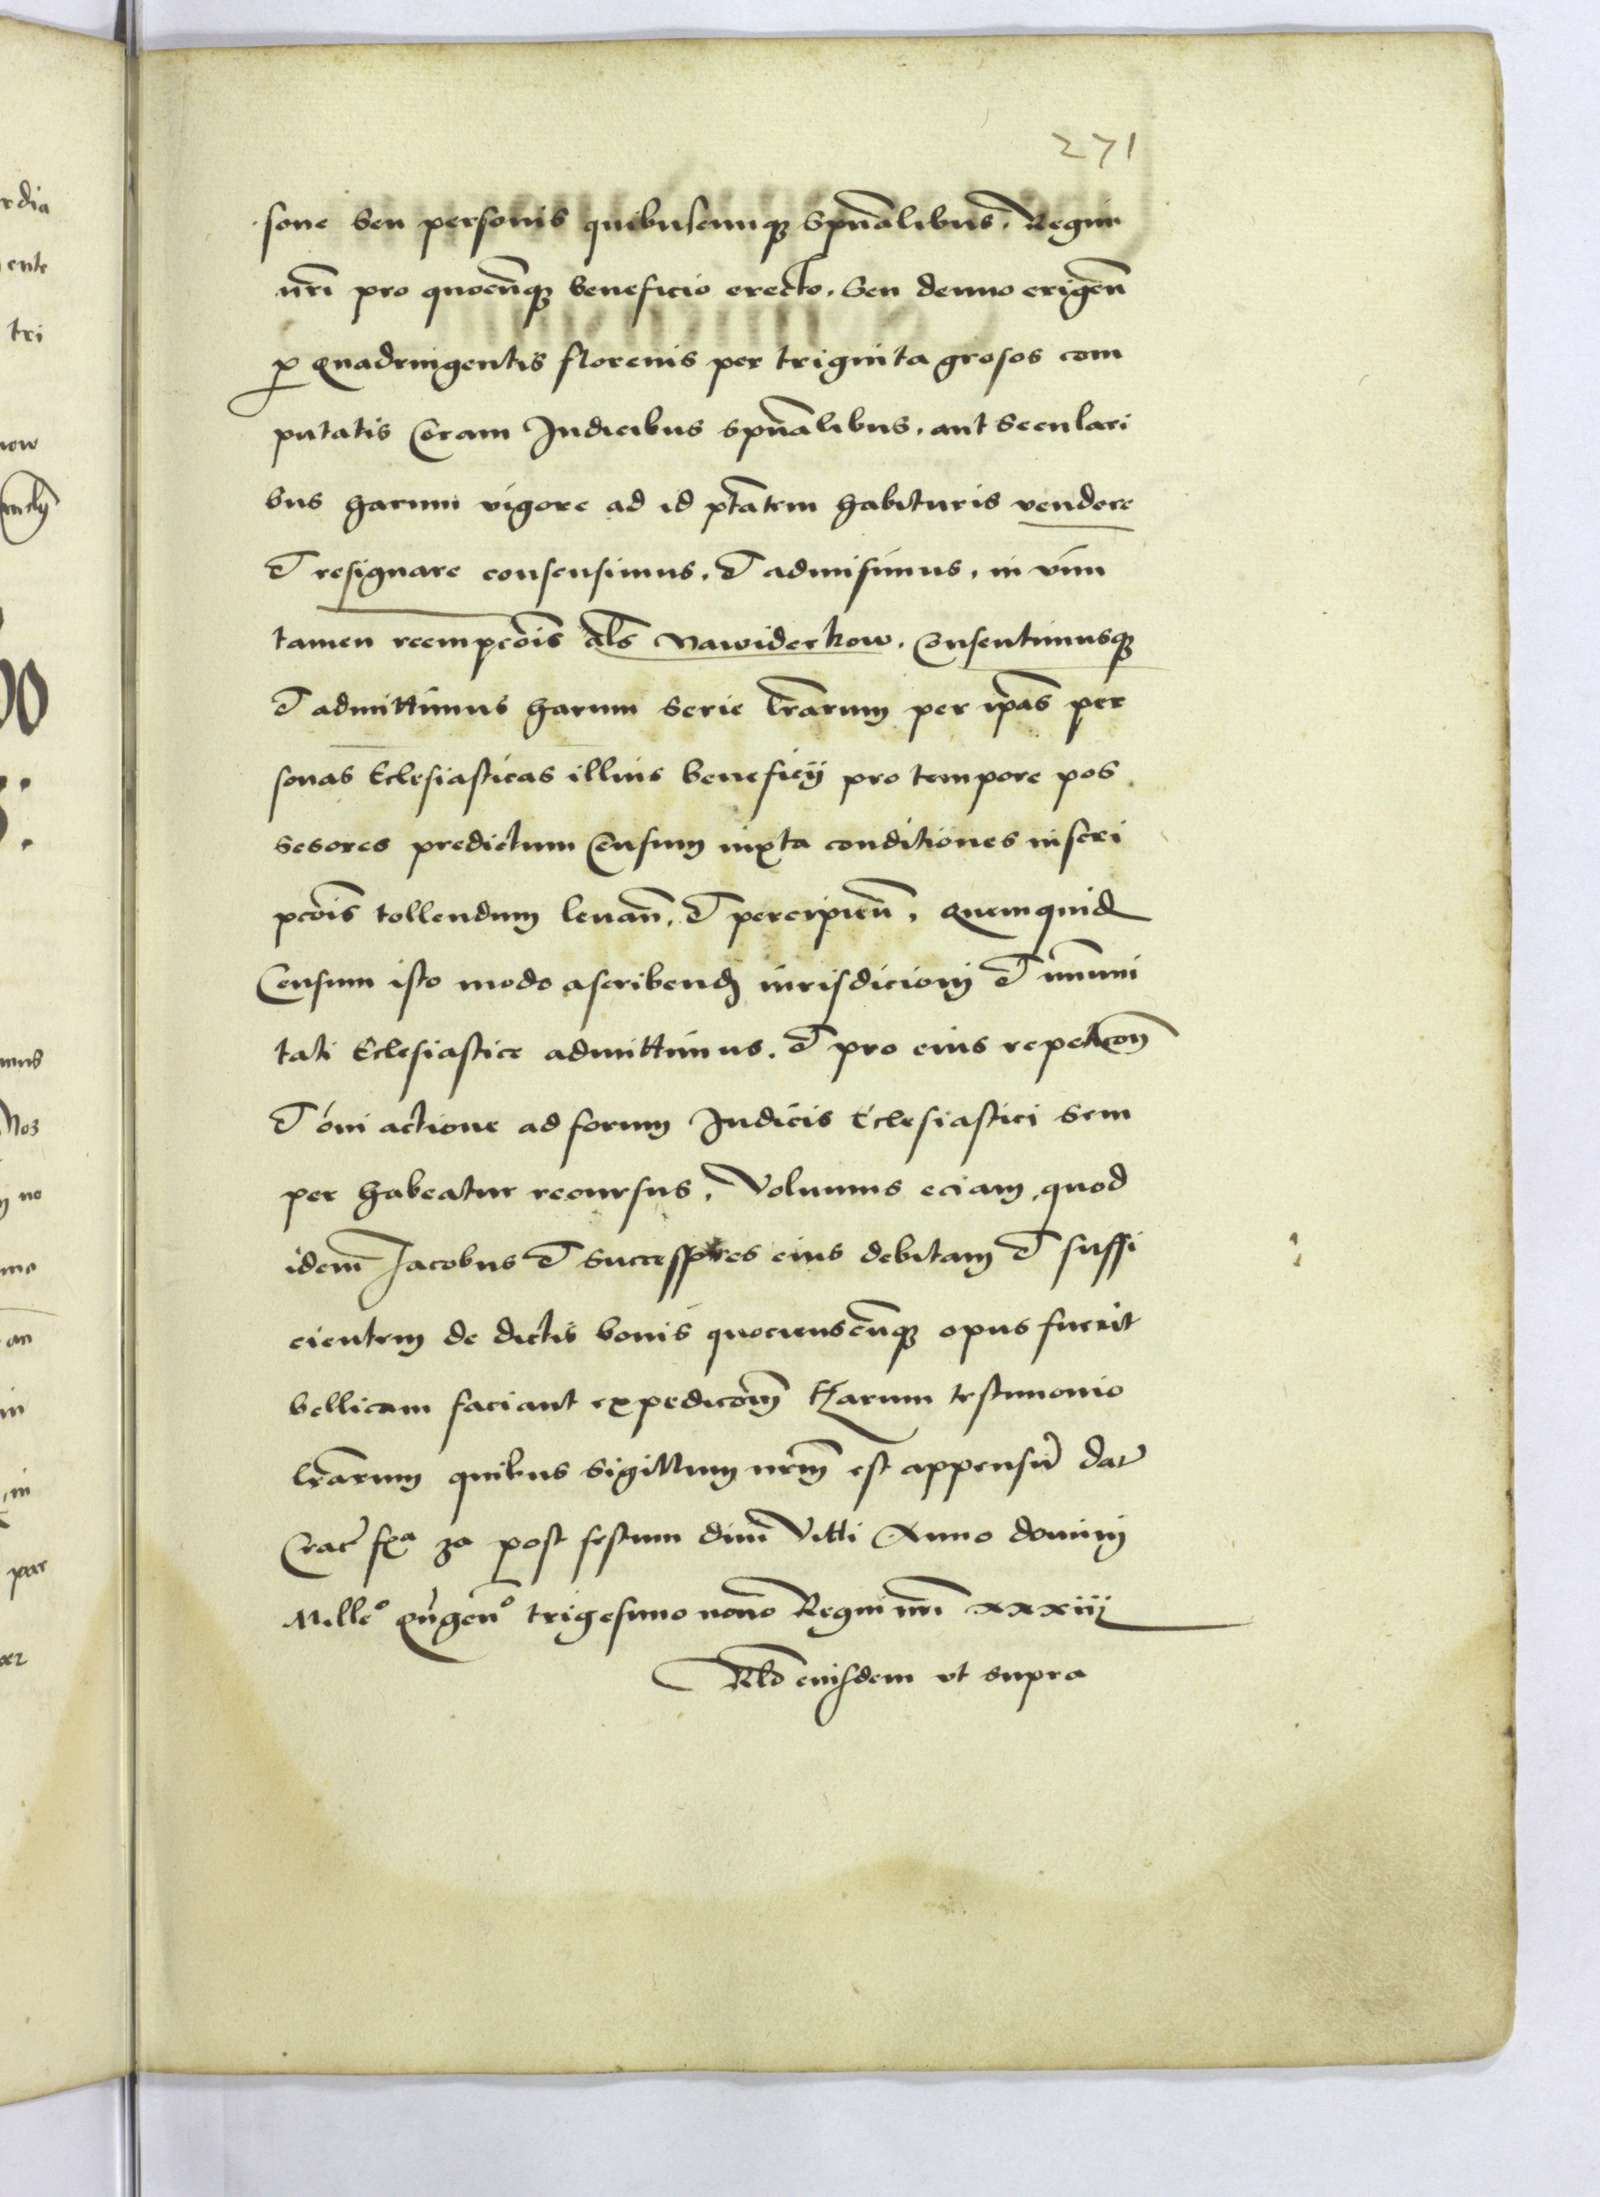 271
sone seu personis quibuscunque spũalibus. Regni
nrĩ pro quocũque beneficio erecto, seu denuo erigeñ
p Quadringentis florenis per triginta grosos com
putatis Coram Iudicibus spũalibus, aut Seculari
bus harum vigore ad id ptãtem habituris vendere
et resignare consensimus, et admisimus, in vim
tamen reempcõis als̃ Nawiderkow. Consentimusque
et admittimus harum serie lrãrum per ipãs per
sonas Eclesiasticas illius beneficij pro tempore pos
sesores predictum Censum iuxta conditiones inscri
pcõis tollendum leuañ, et percipieñ, Quemquid
Censum isto modo ascribend iurisdicioni et im̃uni
tati Eclesiastice admittimus. et pro eius repeticoñ
et om̃i actione ad forum Iudicis Eclesiastici sem
per habeatur recursus, Volumus eciam, quod
idem̃ Jacobus et successores eius debitam et suffi
cientem de dictis bonis quocienscũque opus fuerit
bellicam faciant expedicom̃ Harum testimonio
lrãrum quibus Sigillum nrm̃ est appensũ dat
Crac fxᵃ 3a post festum diui Vitti Anno domini
Milleº Quĩgenº trigesimo nono Regni nrĩ xxxiij
Rlõ eiusdem ut supra
rdia
ente
tri
now
mus
Nos
no
an
in